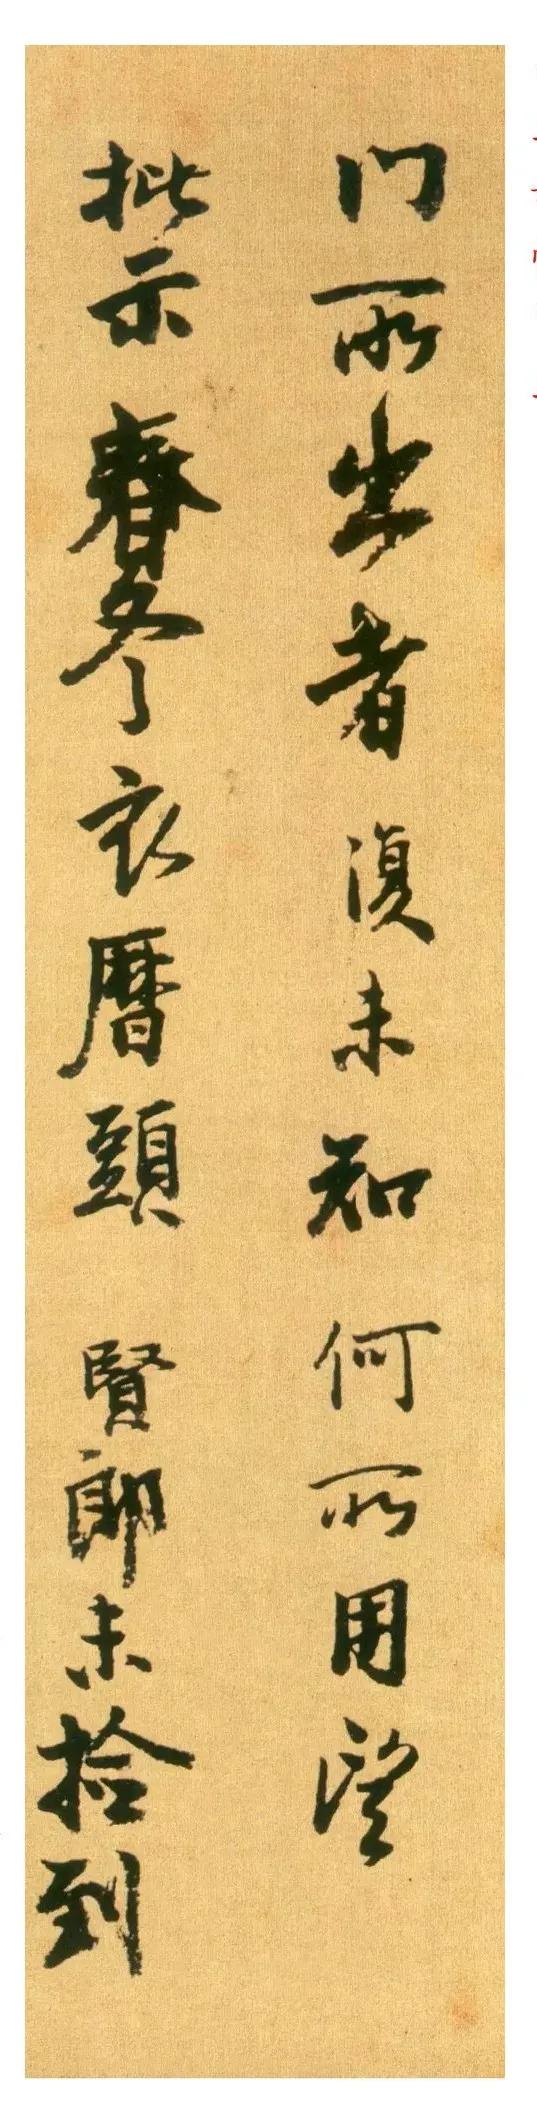 门所出者復未知何所用望
批示春冬衣曆頭賢郎未拾到